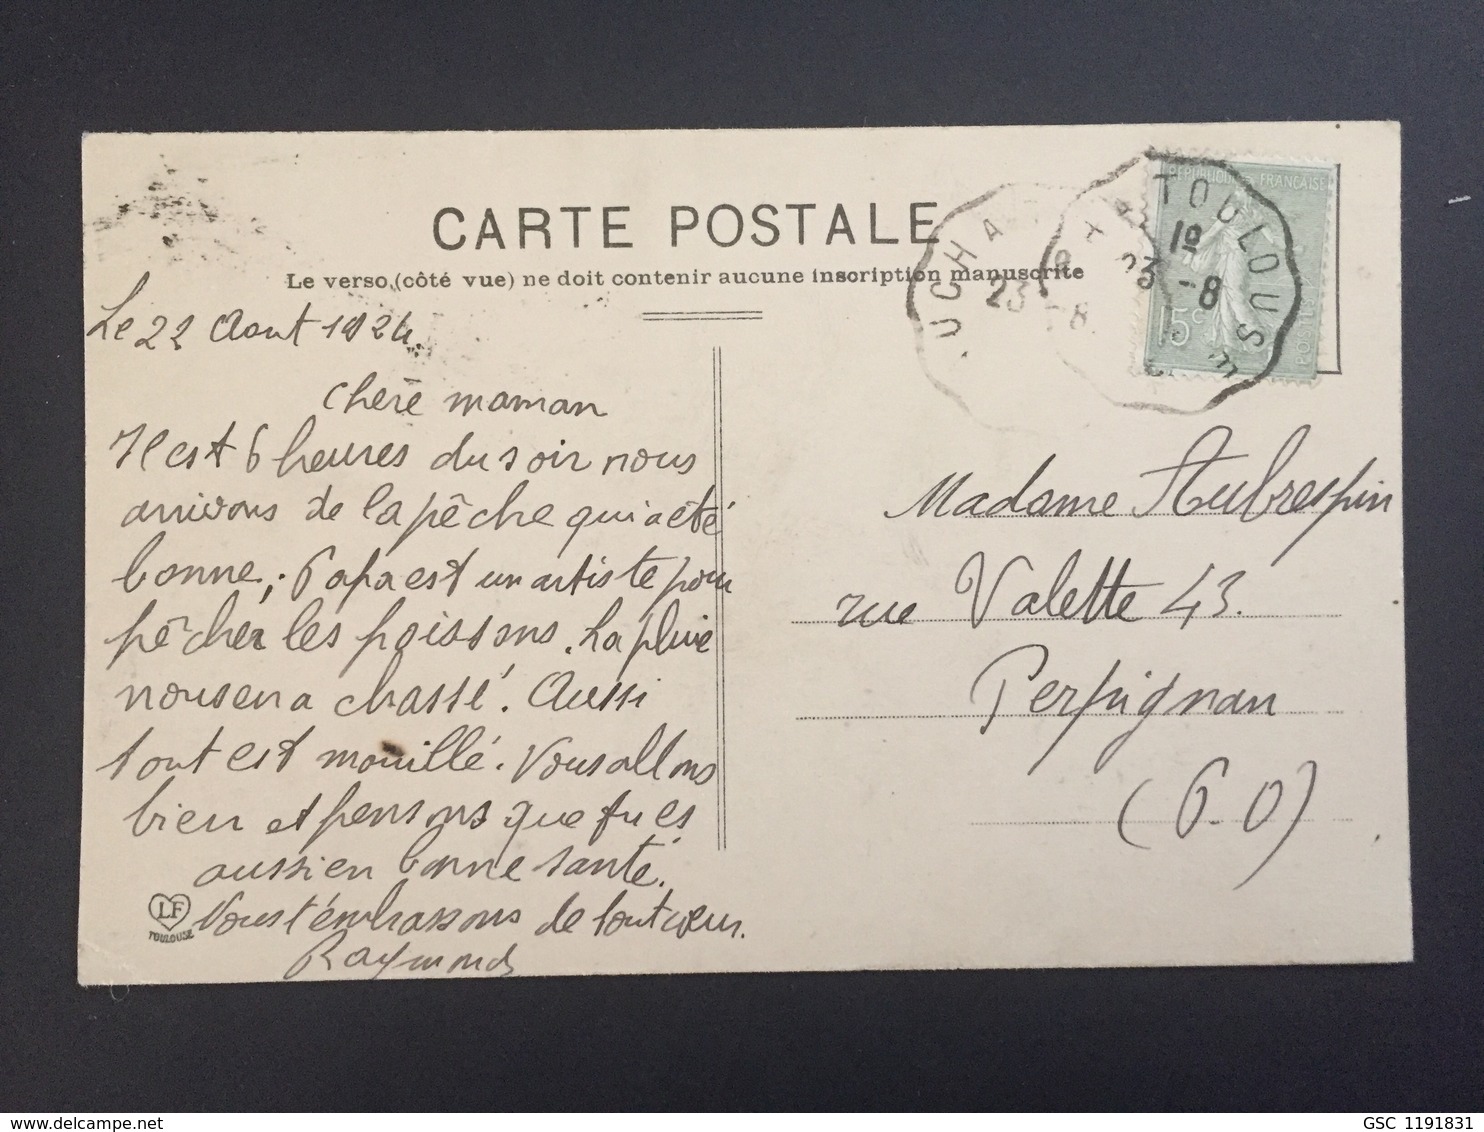 CARTE POSTALE
Le verso (côté vue) ne doit contenir aucune inscription manuscrite
Le 22 Aout 1924.
Chère maman
Il est 6 heures du soir nous
arrivons de la pêche qui a été
bonne, ; Papa est un artiste pour
pêcher les poissons. La pluie
nous en a chassé. Aussi
tout est mouillé. Vous allons
bien et pensons que tu es
aussi en bonne santé.
Nous t'embrassons de tout cœur.
Raymond
LF
TOULOUSE
UCHA
23 - 8
A TOULOUSE
19
23 - 8
REPUBLIQUE FRANÇAISE
15c
POSTES
Madame Aubrespin
rue Valette 43.
Perpignan
(P-O)
GSC 1191831